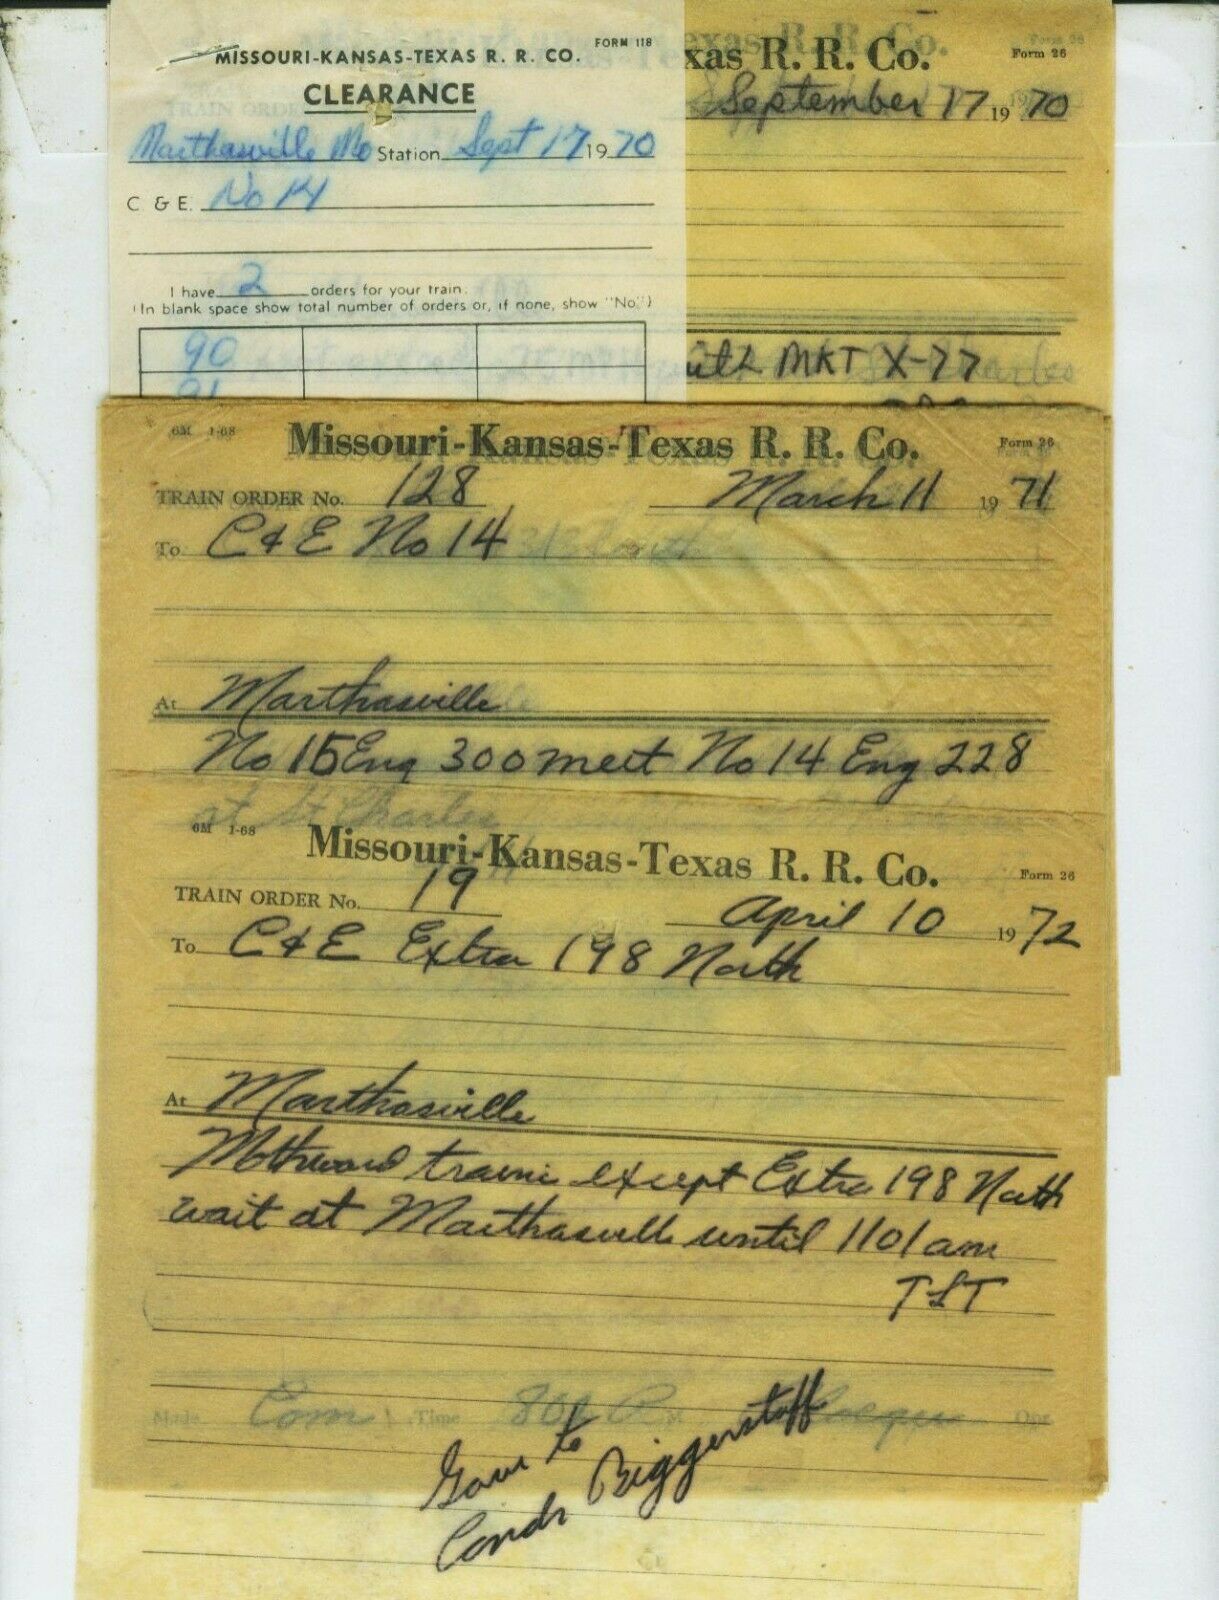 FORM 118
MISSOURI-KANSAS-TEXAS R. R. CO.
CLEARANCE
Marthasville Mo Station Sept 17 1970
C & E. No 14
I have 2 orders for your train.
(In blank space show total number of orders or, if none, show "No.")
90
91
xas R. R. Co.
Form 26
September 17 1970
with MKT X-77
6M 1-68
Missouri-Kansas-Texas R. R. Co.
Form 26
TRAIN ORDER No. 128 March 11 1971
To C & E No 14
At Marthasville
No 15 Eng 300 meet No 14 Eng 228
at St Charles
6M 1-68
Missouri-Kansas-Texas R. R. Co.
Form 26
TRAIN ORDER No. 19 April 10 1972
To C & E Extra 198 North
At Marthasville
Northward trains except Extra 198 North
wait at Marthasville until 1101 am
TLT
Made Com Time 801 A M Opr
Gave to
Condr Biggerstaff